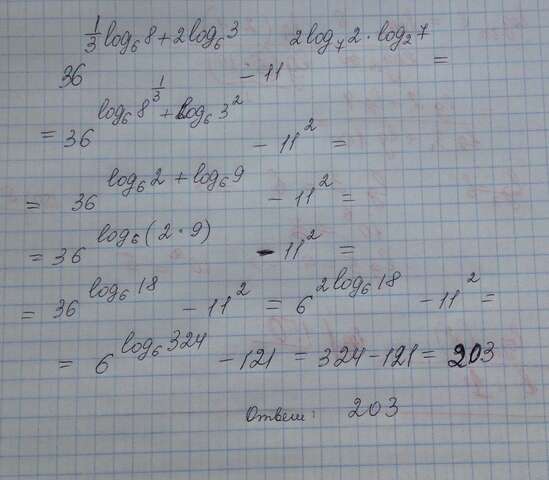 36^(1/3 log₆8 + 2log₆3) - 11^(2log₇2 · log₂7) =
= 36^(log₆8^(1/3) + log₆3²) - 11² =
= 36^(log₆2 + log₆9) - 11² =
= 36^(log₆(2·9)) - 11² =
= 36^(log₆18) - 11² = 6^(2log₆18) - 11² =
= 6^(log₆324) - 121 = 324 - 121 = 203
Ответ: 203